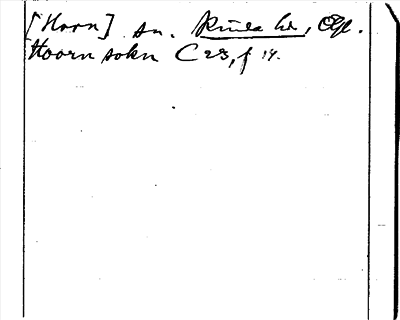 [Hoorn] sn. Kinda hd, Ögl.
Hoorn sokn C 23, f 14.